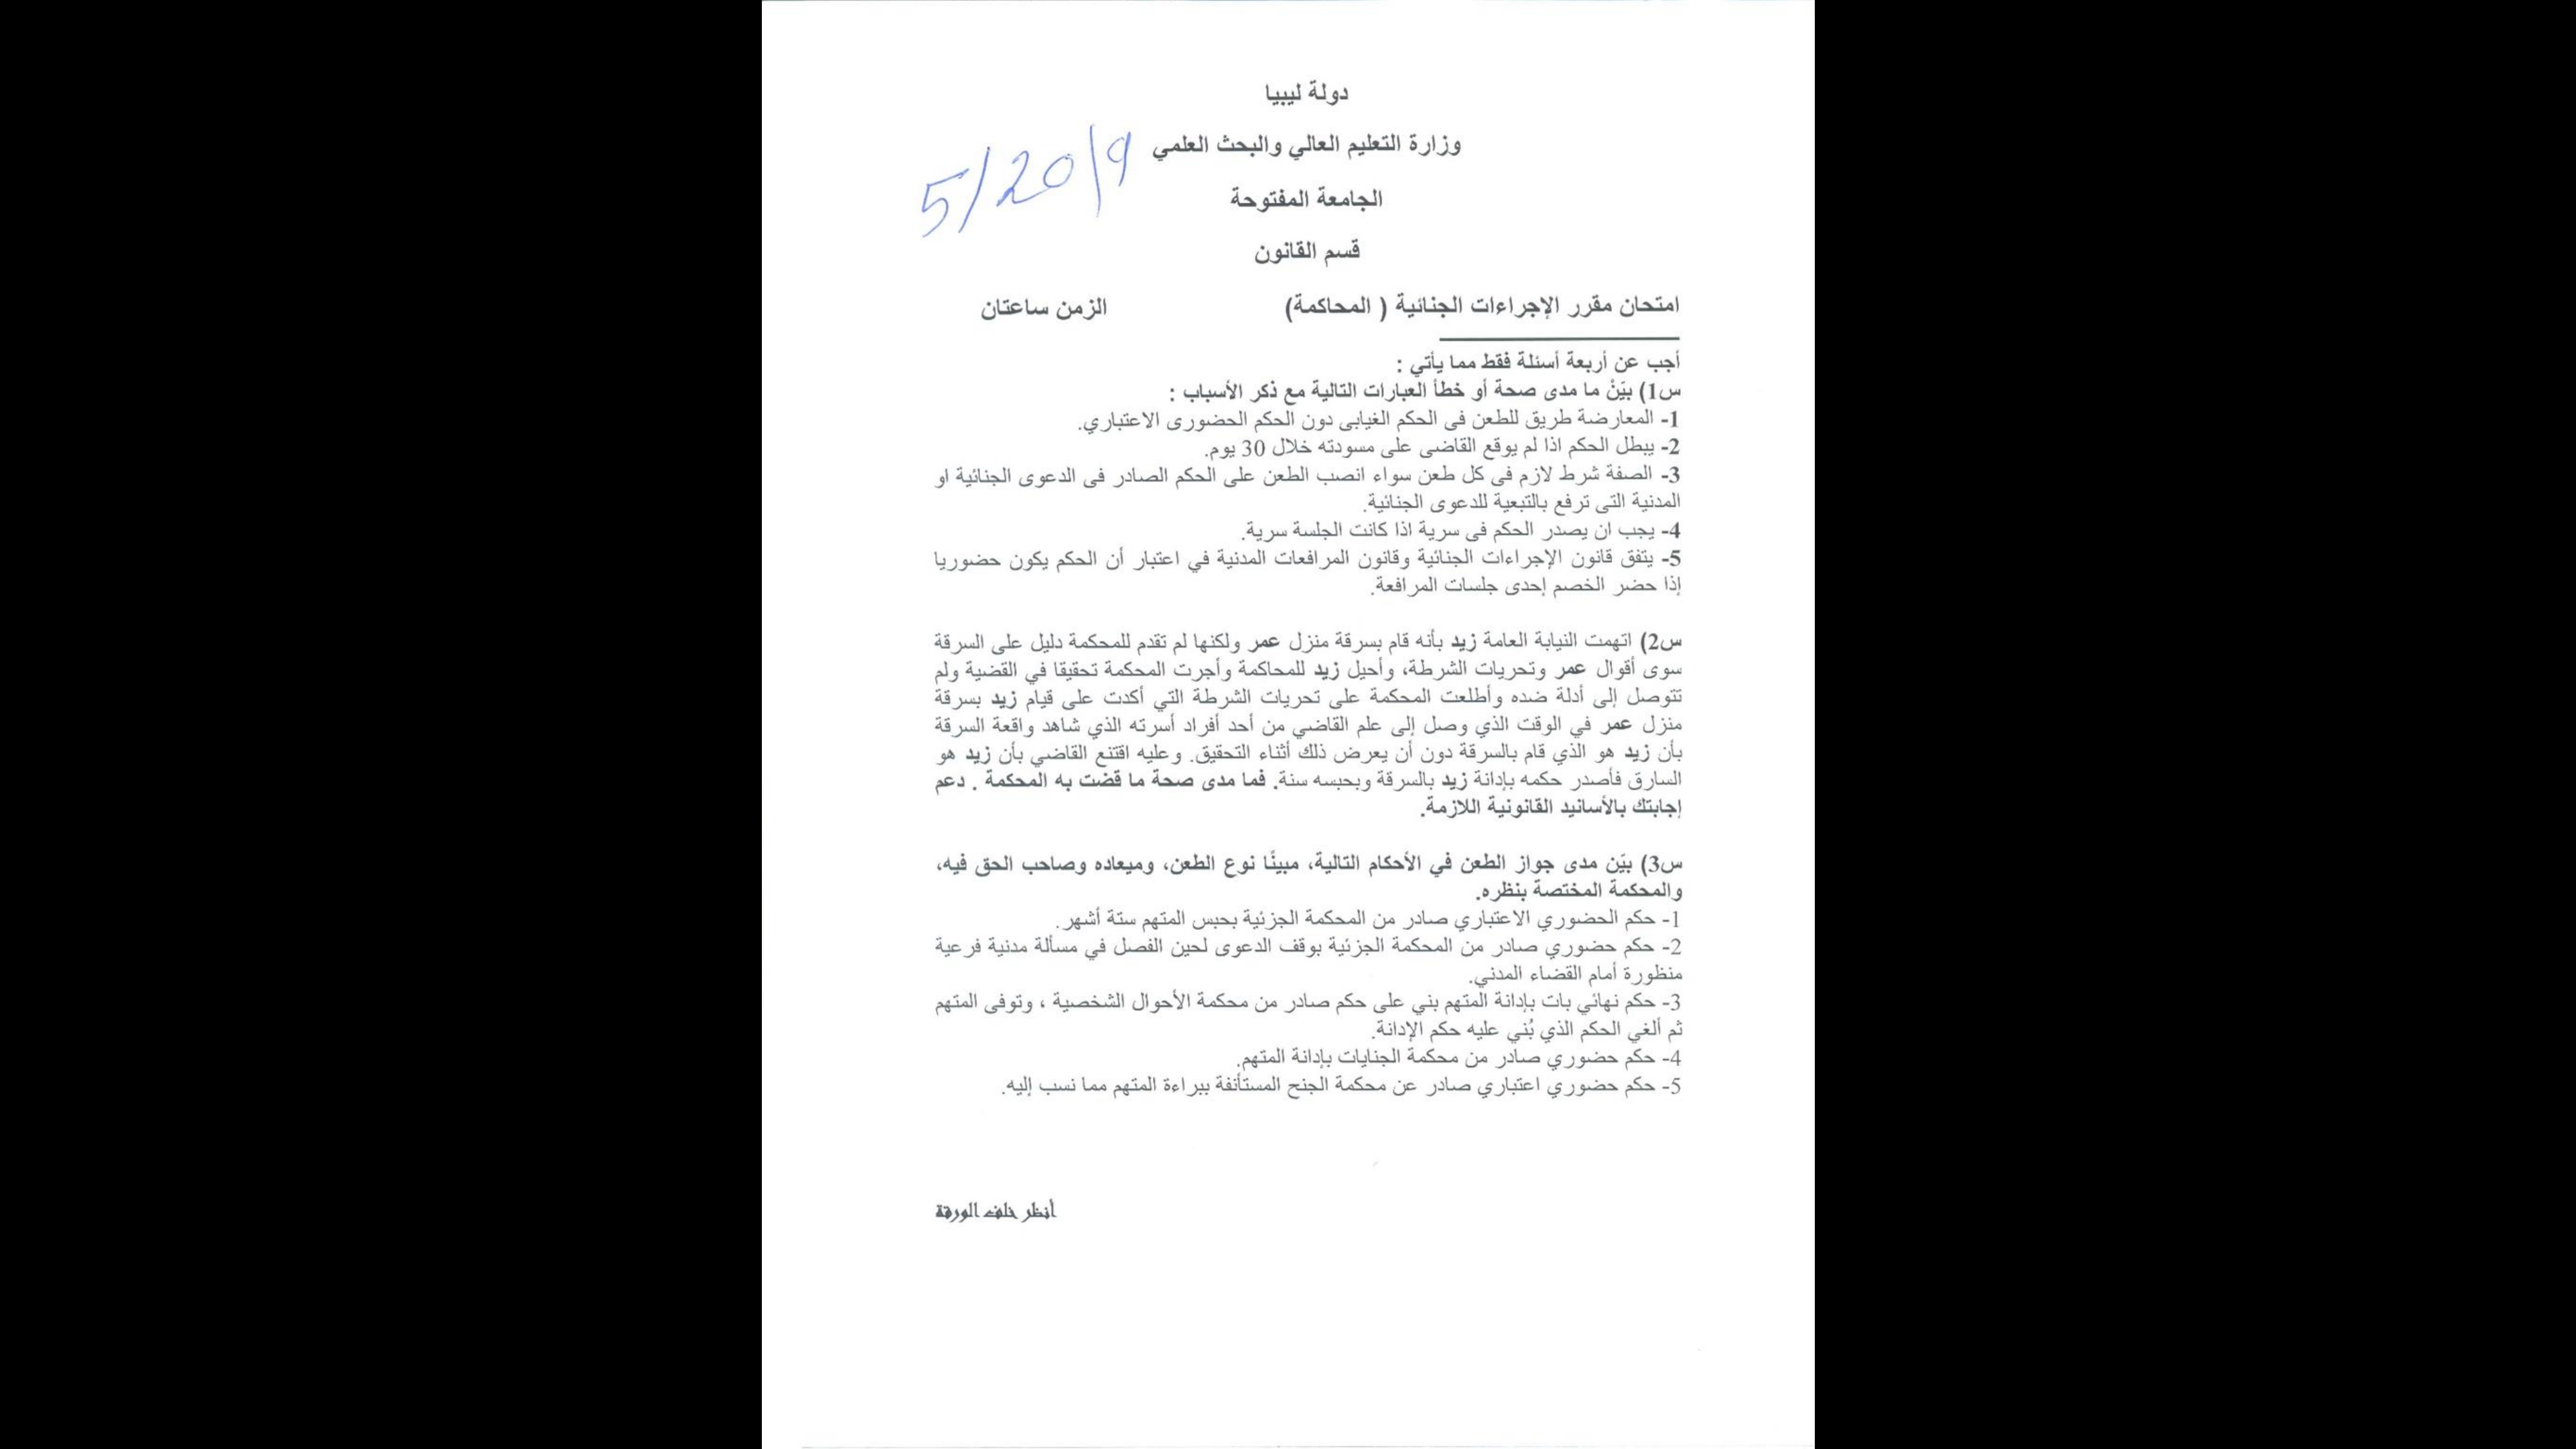 دولة ليبيا
وزارة التعليم العالي والبحث العلمي
5/2019
الجامعة المفتوحة
قسم القانون
امتحان مقرر الإجراءات الجنائية ( المحاكمة) الزمن ساعتان
أجب عن أربعة أسئلة فقط مما يأتي :
س1) بيّنْ ما مدى صحة أو خطأ العبارات التالية مع ذكر الأسباب :
1- المعارضة طريق للطعن فى الحكم الغيابى دون الحكم الحضورى الاعتباري.
2- يبطل الحكم اذا لم يوقع القاضى على مسودته خلال 30 يوم.
3- الصفة شرط لازم فى كل طعن سواء انصب الطعن على الحكم الصادر فى الدعوى الجنائية او
المدنية التى ترفع بالتبعية للدعوى الجنائية.
4- يجب ان يصدر الحكم فى سرية اذا كانت الجلسة سرية.
5- يتفق قانون الإجراءات الجنائية وقانون المرافعات المدنية في اعتبار أن الحكم يكون حضوريا
إذا حضر الخصم إحدى جلسات المرافعة.
س2) اتهمت النيابة العامة زيد بأنه قام بسرقة منزل عمر ولكنها لم تقدم للمحكمة دليل على السرقة
سوى أقوال عمر وتحريات الشرطة، وأحيل زيد للمحاكمة وأجرت المحكمة تحقيقا في القضية ولم
تتوصل إلى أدلة ضده وأطلعت المحكمة على تحريات الشرطة التي أكدت على قيام زيد بسرقة
منزل عمر في الوقت الذي وصل إلى علم القاضي من أحد أفراد أسرته الذي شاهد واقعة السرقة
بأن زيد هو الذي قام بالسرقة دون أن يعرض ذلك أثناء التحقيق. وعليه اقتنع القاضي بأن زيد هو
السارق فأصدر حكمه بإدانة زيد بالسرقة وبحبسه سنة. فما مدى صحة ما قضت به المحكمة . دعم
إجابتك بالأسانيد القانونية اللازمة.
س3) بيّن مدى جواز الطعن في الأحكام التالية، مبينًا نوع الطعن، وميعاده وصاحب الحق فيه،
والمحكمة المختصة بنظره.
1- حكم الحضوري الاعتباري صادر من المحكمة الجزئية بحبس المتهم ستة أشهر.
2- حكم حضوري صادر من المحكمة الجزئية بوقف الدعوى لحين الفصل في مسألة مدنية فرعية
منظورة أمام القضاء المدني.
3- حكم نهائي بات بإدانة المتهم بني على حكم صادر من محكمة الأحوال الشخصية ، وتوفى المتهم
ثم ألغي الحكم الذي بُني عليه حكم الإدانة.
4- حكم حضوري صادر من محكمة الجنايات بإدانة المتهم.
5- حكم حضوري اعتباري صادر عن محكمة الجنح المستأنفة ببراءة المتهم مما نسب إليه.
أنظر خلف الورقة